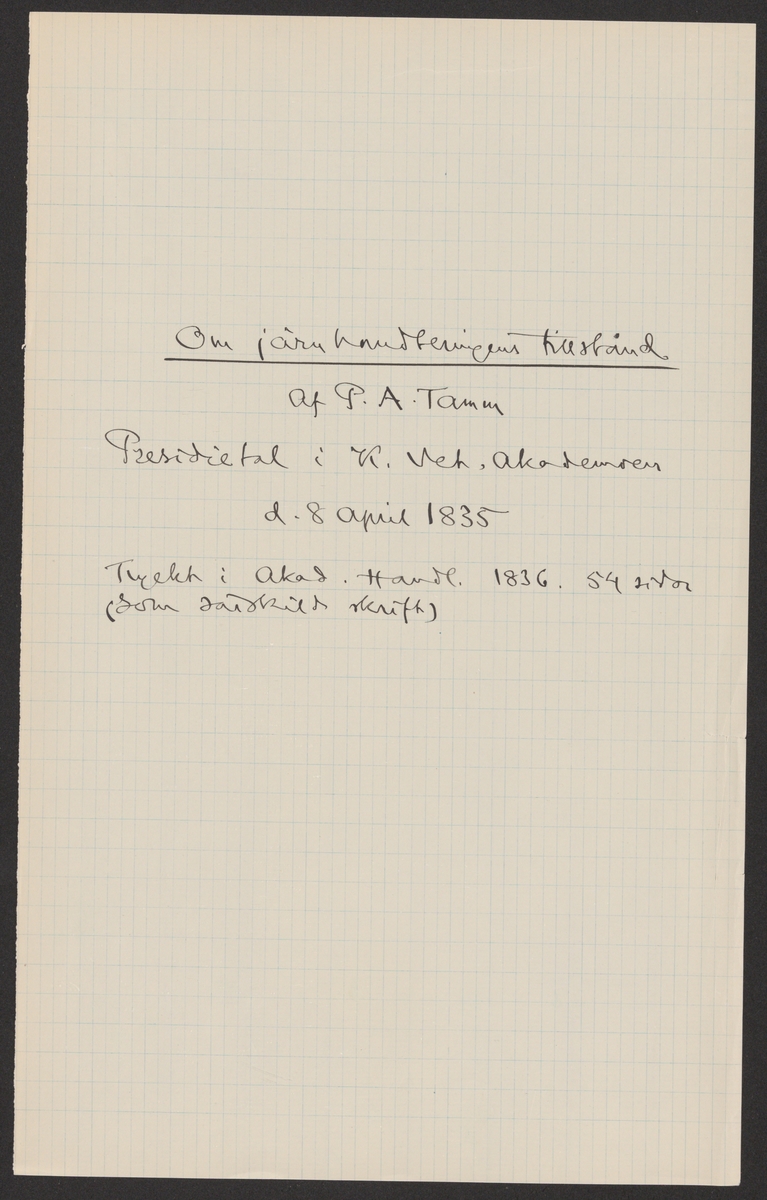 Om järnhandteringens tillstånd
af P. A. Tamm
Presidietal i K. Vet. Akademien
d. 8 April 1835
Tryckt i Akad. Handl. 1836. 54 sidor
(som särskild skrift)